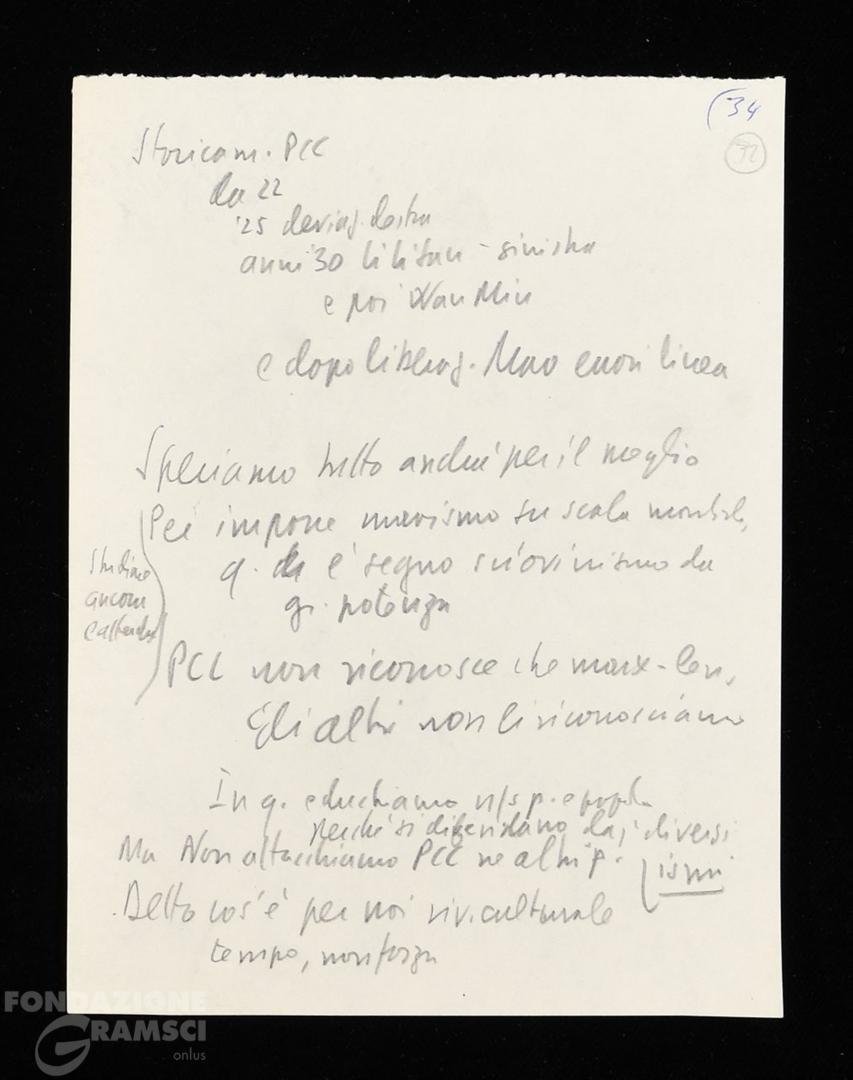 (34
32
Storicam. PCC
da 22
'25 deviaz. destra
anni 30 Li Li San - sinistra
e poi Wan Min
e dopo liberaz. Mao e nori linea
Speriamo tutto andrà per il meglio
Per imporre marxismo su scala mondiale,
q. è segno sciovinismo da
gr. potenza
Studiare
ancora
e attendere
PCC non riconosce che marx-len,
Gli altri non li riconosciamo
In q. educhiamo n/s p. e popolo
perché si difendano dai diversi
ismi
Ma Non attacchiamo PCC né altri p.
Detto cos'è per noi riv. culturale
tempo, non forza
FONDAZIONE
GRAMSCI
onlus